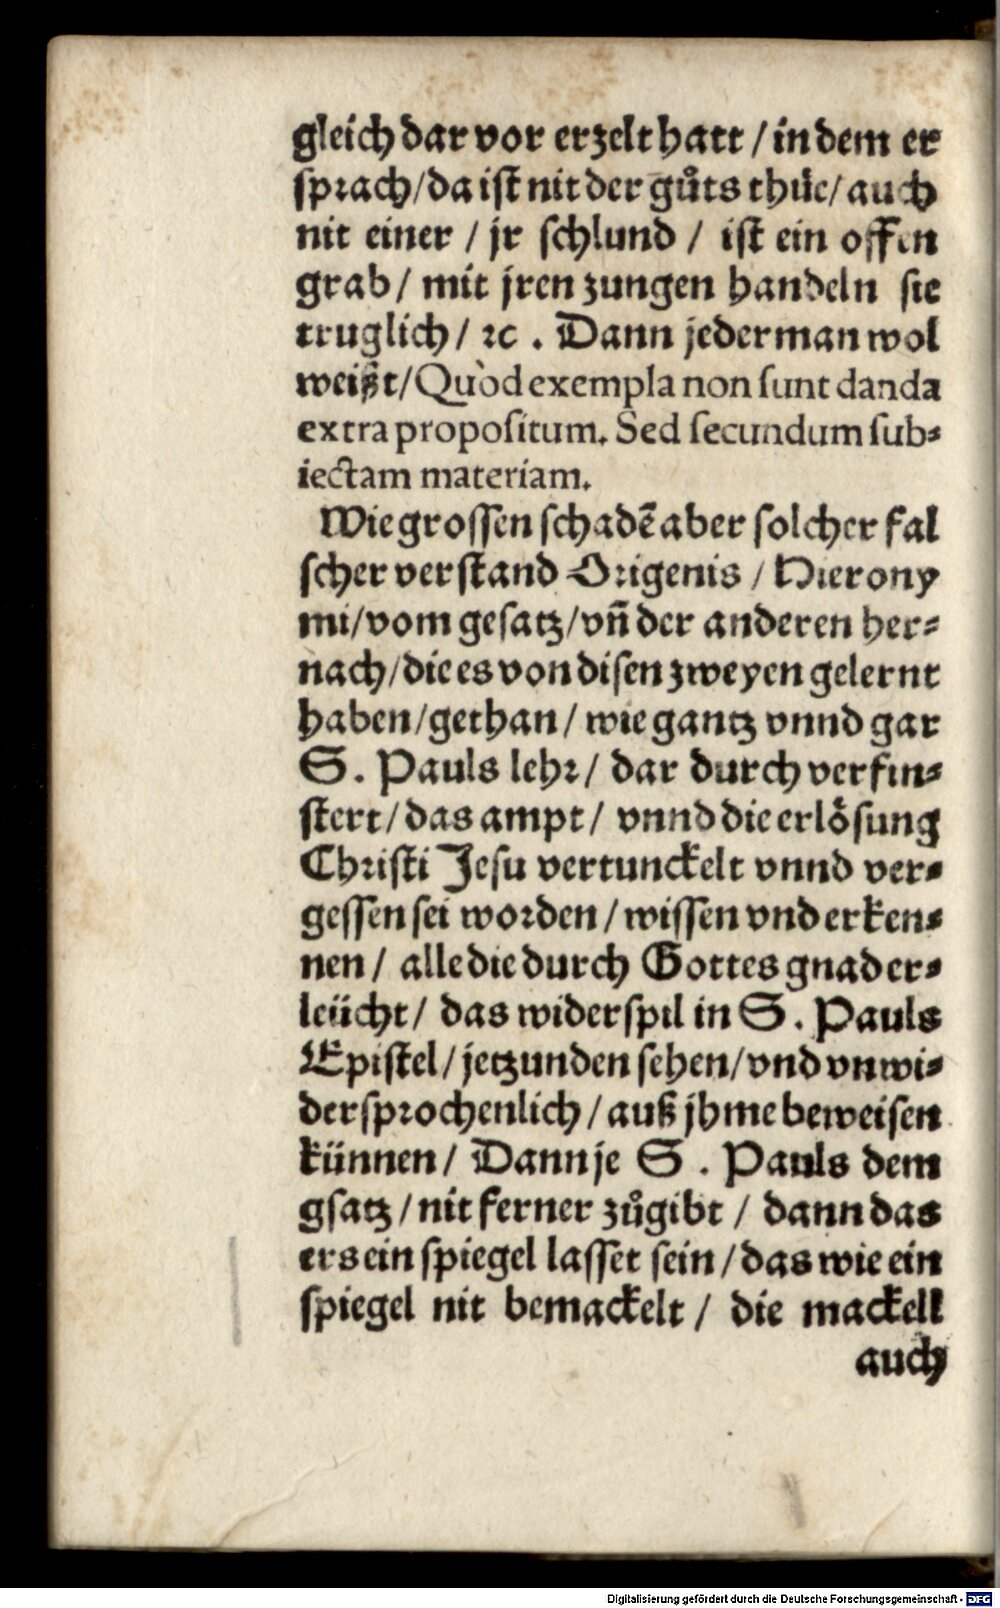 gleich dar vor erzelt hatt / in dem er
sprach/da ist nit der gůts thüe/ auch
nit einer / jr schlund / ist ein offen
grab / mit jren zungen handeln sie
truglich / ꝛc . Dann jederman wol
weißt/Quòd exempla non sunt danda
extra propositum. Sed secundum sub⸗
iectam materiam.
Wie grossen schadē aber solcher fal
scher verstand Origenis / Hierony
mi/vom gesatz/vñ der anderen her⸗
nach/die es von disen zweyen gelernt
haben/gethan / wie gantz vnnd gar
S. Pauls lehr/ dar durch verfin⸗
stert/das ampt/ vnnd die erlȯ̈sung
Christi Jesu vertunckelt vnnd ver⸗
gessen sei worden / wissen vnd erken⸗
nen / alle die durch Gottes gnad er⸗
leücht/ das widerspil in S. Pauls
Epistel/jetzunden sehen/vnd vnwi⸗
dersprochenlich / auß jhme beweisen
künnen / Dann je S . Pauls dem
gsatz / nit ferner zůgibt / dann das
ers ein spiegel lasset sein / das wie ein
spiegel nit bemackelt / die mackell
auch
Digitalisierung gefördert durch die Deutsche Forschungsgemeinschaft - DFG